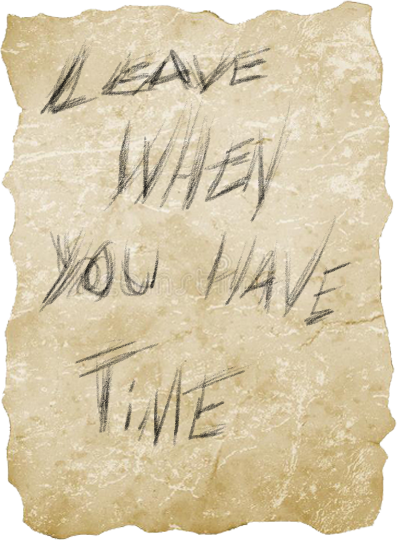 LEAVE
WHEN
YOU HAVE
TiME